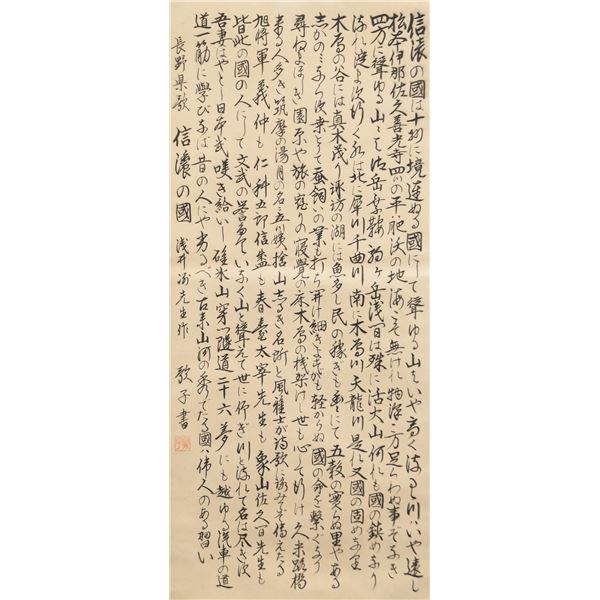 信濃の國は十州に境連ぬる國にして聳ゆる山はいや高く流るゝ川はいや遠し
松本伊那佐久善光寺四つの平は肥沃の地海こそ無けれ物沢に万足らわぬ事ぞなき
四方に聳ゆる山々は御岳乗鞍駒ヶ岳浅間は殊に活火山何れも國の鎮めなり
流れ淀まず行く水は北に犀川千曲川南に木曽川天龍川是れ又國の固めなり
木曽の谷には真木茂り諏訪の湖には魚多し民の稼ぎも豊にて五穀の実らぬ里やある
しかのみならず桑とりて蚕飼いの業も打ち開け細きよすがも軽からぬ國の命を繋ぐなり
尋ねまほしき園原や旅の宿りの寝覚の床木曽の桟架けし世も心して行け久米路橋
来る人多き筑摩の湯月の名に立つ姨捨山しるき名所と風雅士が詩歌に詠みてぞ傳えたる
旭将軍義仲も仁科五郎信盛も春臺太宰先生も象山佐久間先生も
皆此の國の人にして文武の誉たぐいなく山と聳えて世に仰ぎ川と流れて名は尽きず
吾妻はやとし日本武嘆き給いし碓氷山穿つ隧道二十六夢にも越ゆる汽車の道
道一筋に学びなば昔の人にや劣るべき古来山河の秀でたる國は偉人のある習い
長野県歌 信濃の國 浅井洌先生作 敬子書